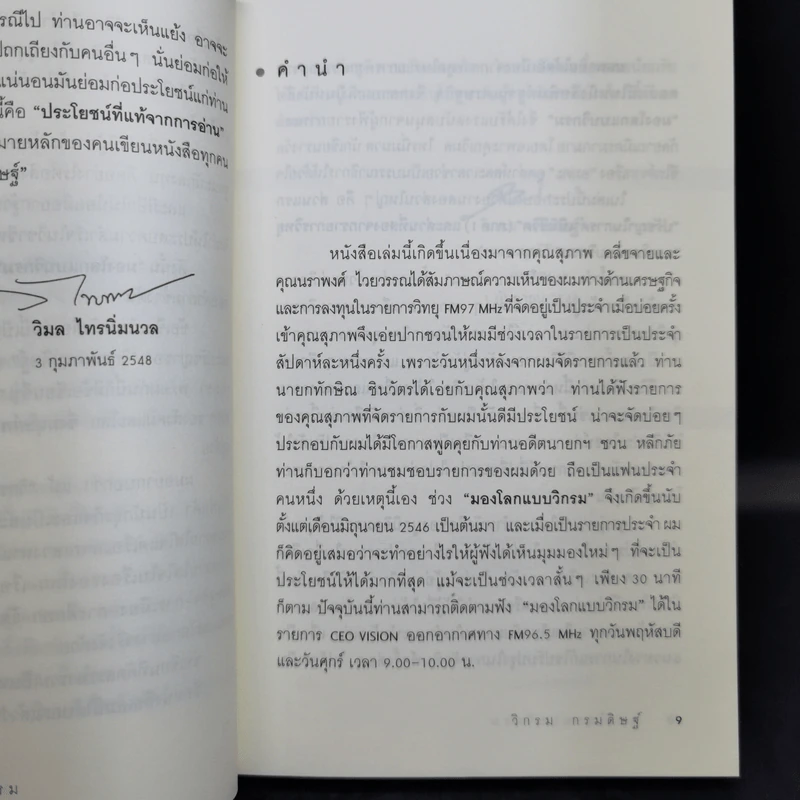 รณีไป ท่านอาจจะเห็นแย้ง อาจจะ
ปถกเถียงกับคนอื่นๆ นั่นย่อมก่อให้
แน่นอนมันย่อมก่อประโยชน์แก่ท่าน
นี้คือ “ประโยชน์ที่แท้จากการอ่าน”
มายหลักของคนเขียนหนังสือทุกคน
ษฐ์”
วิมล ไทรนิ่มนวล
3 กุมภาพันธ์ 2548
รม
คำนำ
หนังสือเล่มนี้เกิดขึ้นเนื่องมาจากคุณสุภาพ คลี่ขจายและ
คุณนราพงศ์ ไวยวรรณได้สัมภาษณ์ความเห็นของผมทางด้านเศรษฐกิจ
และการลงทุนในรายการวิทยุ FM97 MHz ที่จัดอยู่เป็นประจำเมื่อบ่อยครั้ง
เข้าคุณสุภาพจึงเอ่ยปากชวนให้ผมมีช่วงเวลาในรายการเป็นประจำ
สัปดาห์ละหนึ่งครั้ง เพราะวันหนึ่งหลังจากผมจัดรายการแล้ว ท่าน
นายกทักษิณ ชินวัตรได้เอ่ยกับคุณสุภาพว่า ท่านได้ฟังรายการ
ของคุณสุภาพที่จัดรายการกับผมนั้นดีมีประโยชน์ น่าจะจัดบ่อยๆ
ประกอบกับผมได้มีโอกาสพูดคุยกับท่านอดีตนายกฯ ชวน หลีกภัย
ท่านก็บอกว่าท่านชมชอบรายการของผมด้วย ถือเป็นแฟนประจำ
คนหนึ่ง ด้วยเหตุนี้เอง ช่วง “มองโลกแบบวิกรม” จึงเกิดขึ้นนับ
ตั้งแต่เดือนมิถุนายน 2546 เป็นต้นมา และเมื่อเป็นรายการประจำ ผม
ก็คิดอยู่เสมอว่าจะทำอย่างไรให้ผู้ฟังได้เห็นมุมมองใหม่ๆ ที่จะเป็น
ประโยชน์ให้ได้มากที่สุด แม้จะเป็นช่วงเวลาสั้นๆ เพียง 30 นาที
ก็ตาม ปัจจุบันนี้ท่านสามารถติดตามฟัง “มองโลกแบบวิกรม” ได้ใน
รายการ CEO VISION ออกอากาศทาง FM96.5 MHz ทุกวันพฤหัสบดี
และวันศุกร์ เวลา 9.00-10.00 น.
วิกรม กรมดิษฐ์ 9